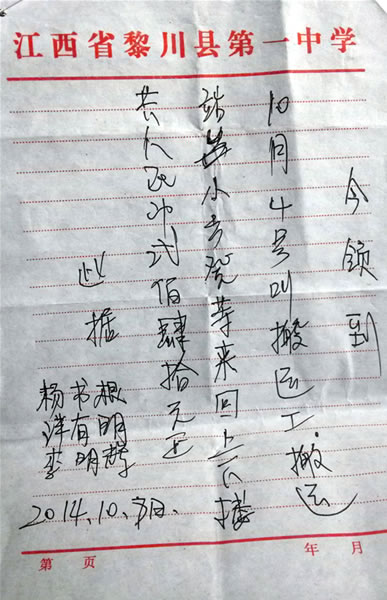 江西省黎川县第一中学
今领到
10月4号叫搬运工.搬运
小方凳等来回上下楼
共人民币弍佰肆拾元正
此据
杨书根
有明
李明
2014.10.
第 页 年 月